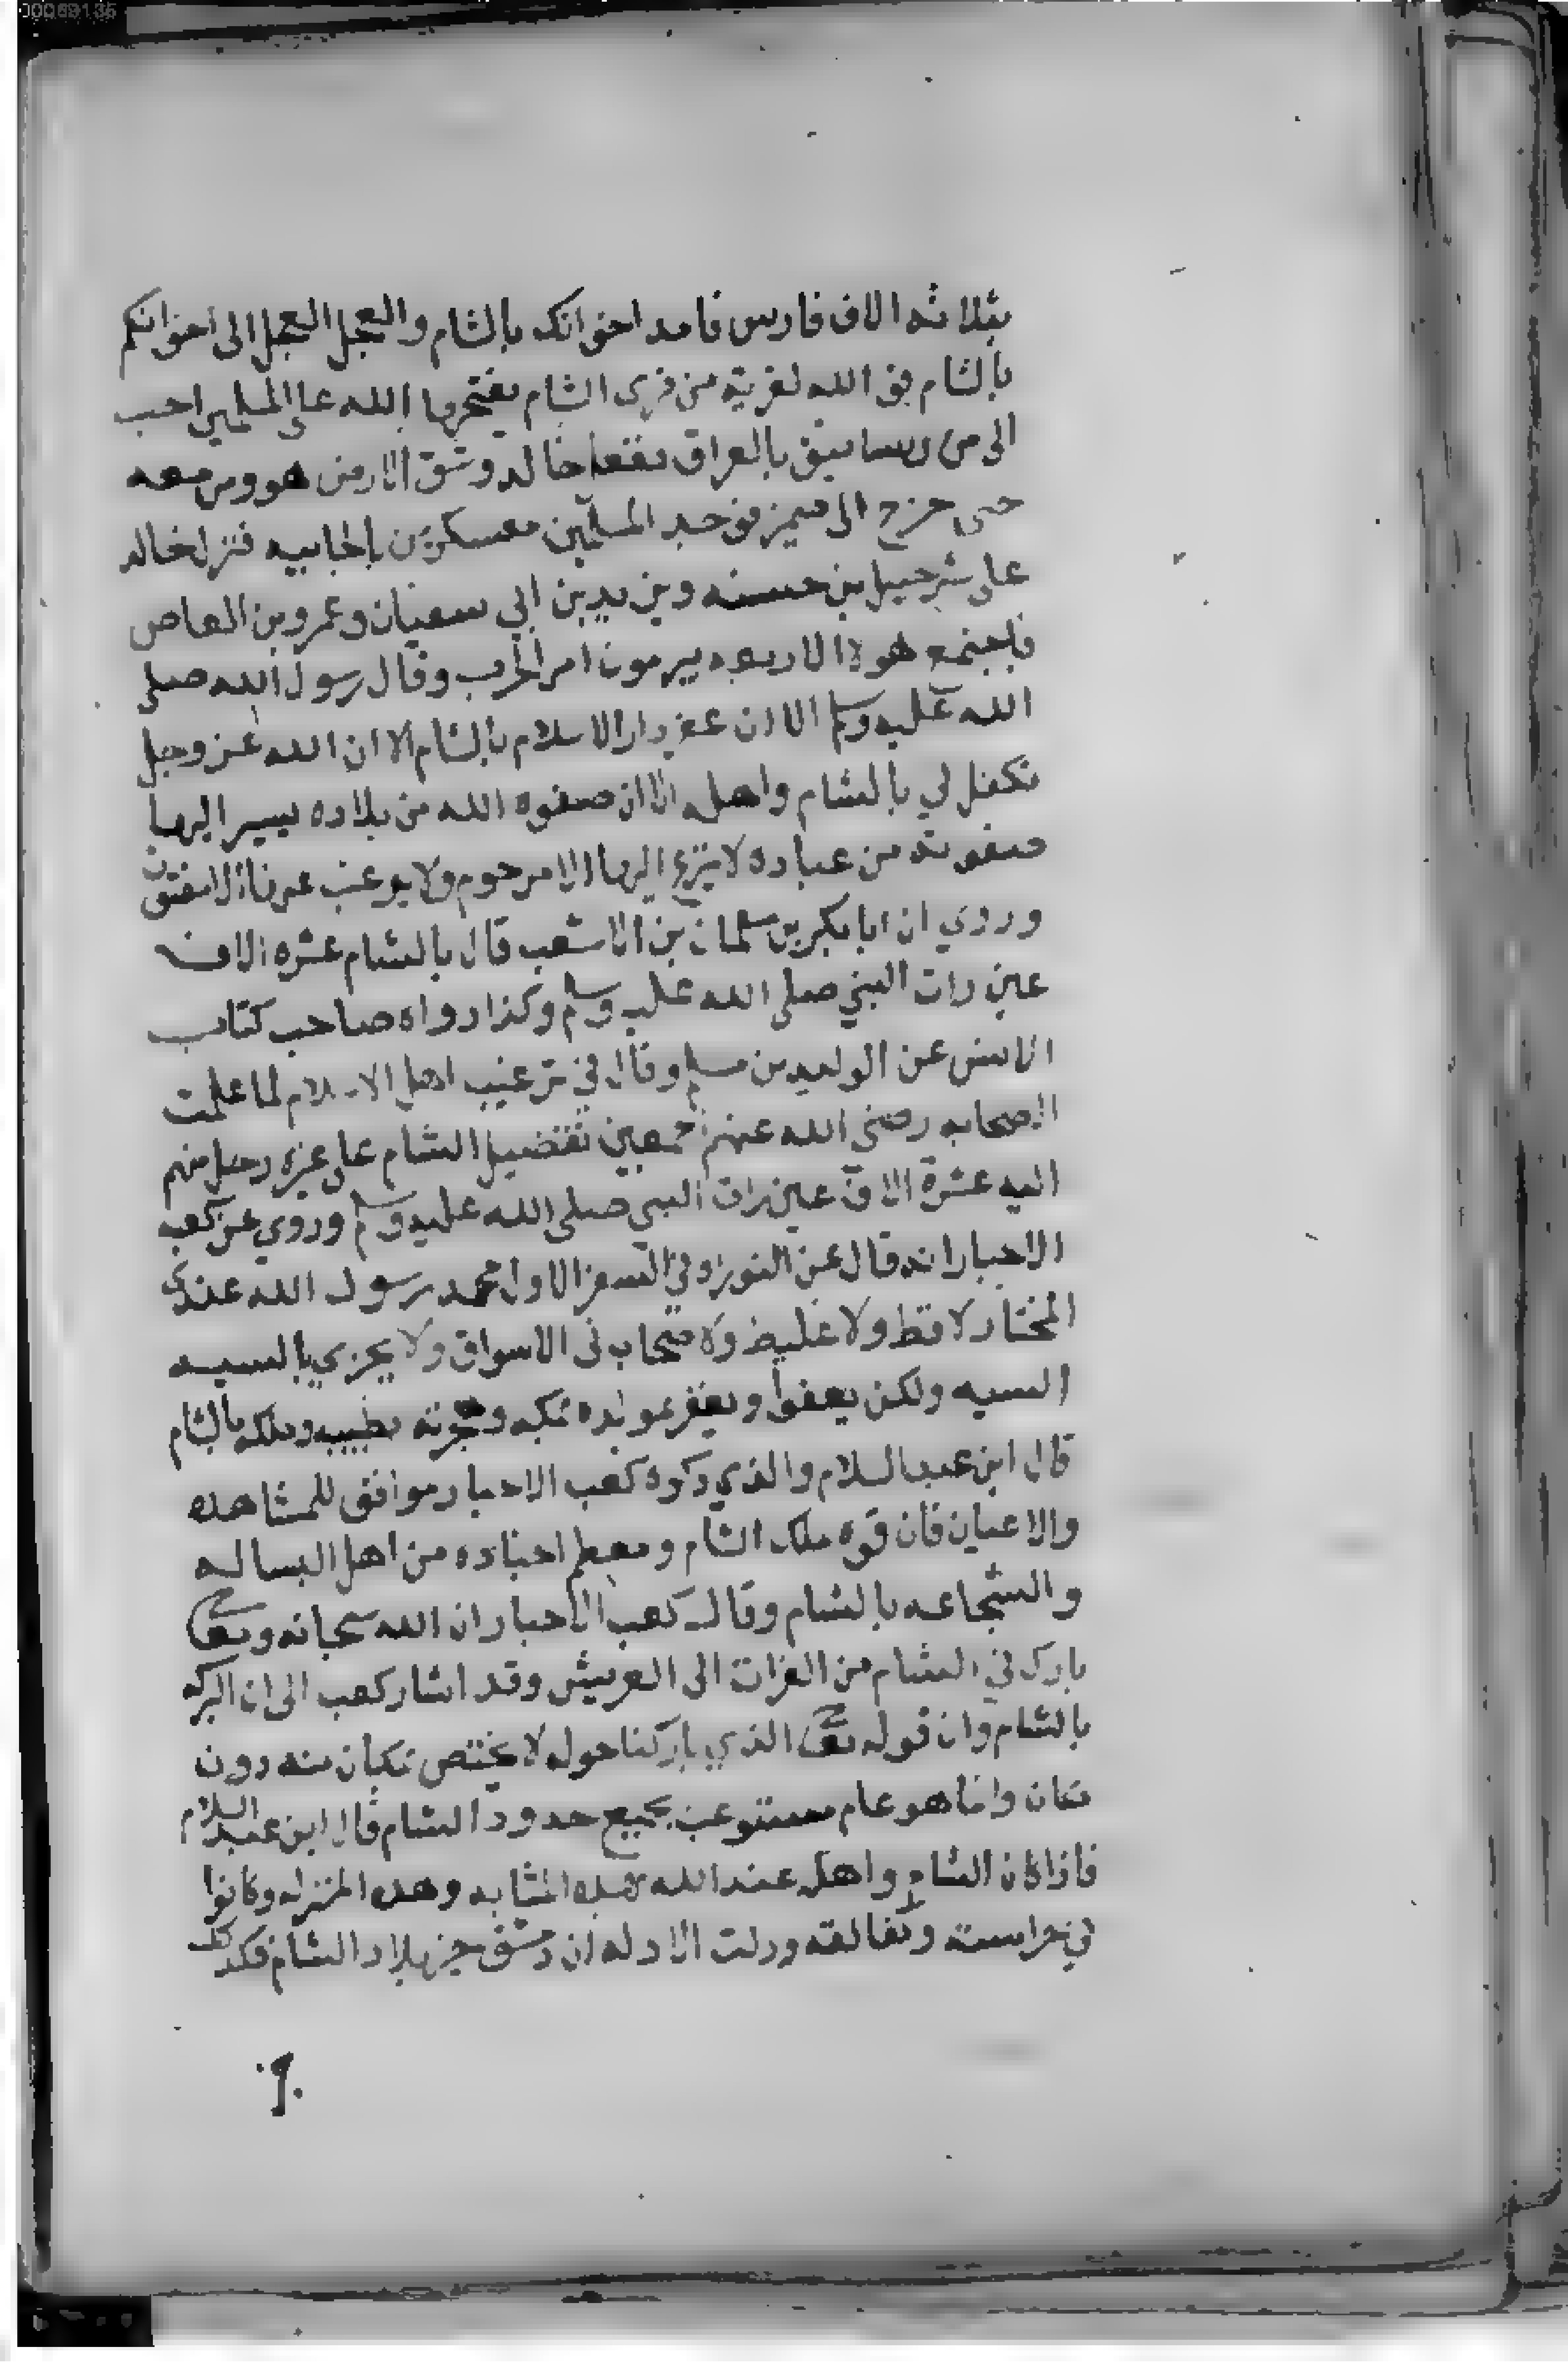 00069135
بثلاثه الاف فارس فامد اخوانك بالشام والعجل العجل الى اخوانكم
بالشام فو الله لقرية من قرى الشام يفتحها الله على المسلمين احب
الى من رساتيق بالعراق ففعل خالد وشق الارض هو ومن معه
حتى خرج الى ضمير فوجد المسلمين معسكرين بالجابيه فنزل خالد
على شرحبيل بن حسنه ويزيد بن ابي سفيان وعمرو بن العاص
فاجتمع هولا الاربعه يبرمون امر الحرب وقال رسول الله صلى
الله عليه وسلم الا ان عقر دار الاسلام بالشام الا ان الله عز وجل
تكفل لي بالشام واهله الا ان صفوه الله من بلاده يسير اليها
صفوته من عباده لا ينزع اليها الا مرحوم ولا يرغب عنها الا مفتون
وروي ان ابا بكر بن سلمان بن الاشعب قال بالشام عشره الاف
عين رات النبي صلى الله عليه وسلم وكذا رواه صاحب كتاب
الانس عن الوليد بن مسلم وقال في ترغيب اهل الاسلام لما علمت
الصحابه رضى الله عنهم اجمعين تفضيل الشام على غيره رحل منهم
اليه عشرة الاف عين رات النبي صلى الله عليه وسلم وروي عن كعب
الاحبار انه قال عن التوراه في السفر الاول محمد رسول الله عبدي
المختار لا فظ ولا غليظ ولا صخاب في الاسواق ولا يجزي بالسيه
السيه ولكن يعفوا ويغفر مولده بمكه وهجرته بطيبه وملكه بالشام
قال ابن عبد السلام والذي ذكره كعب الاحبار موافق للمشاهده
والاعيان فان قوه ملك الشام ومعظم اجناده من اهل البساله
والشجاعه بالشام وقال كعب الاحبار ان الله سبحانه وتعالى
بارك في الشام من الفرات الى العريش وقد اشار كعب الى ان البركه
بالشام وان قوله تعالى الذي باركنا حوله لا يختص بمكان منه دون
مكان وانما هو عام مستوعب بجميع حدود الشام قال ابن عبد السلام
فاذا كان الشام واهله عند الله بهذه المثابه وهذه المنزله وكانوا
في حراسته وكفالته ودلت الادله ان دمشق خير بلاد الشام فكذلك